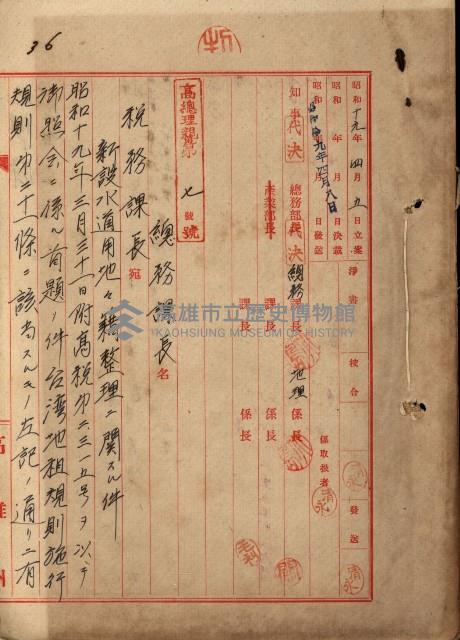 36
昭和十九年四月五日立案
昭和 年 月 日決裁
昭和十九年四月八日發送
淨書
校合
發送
知事代決
總務部長代決
產業部長
總務課長
課長
課長
地理係長
係長
係長
係取扱者
清水
清水
清水
毛利
高總理親第七號
總務課長名
稅務課長宛
新設水道用地々籍整理ニ關スル件
昭和十九年三月三十一日附高稅第二三一五号ヲ以テ
御照會ニ係ル首題ノ件台湾地租規則施行
規則第二十一條ニ該当スルモノ左記ノ通リニ有
高雄州
高雄市立歷史博物館
KAOHSIUNG MUSEUM OF HISTORY